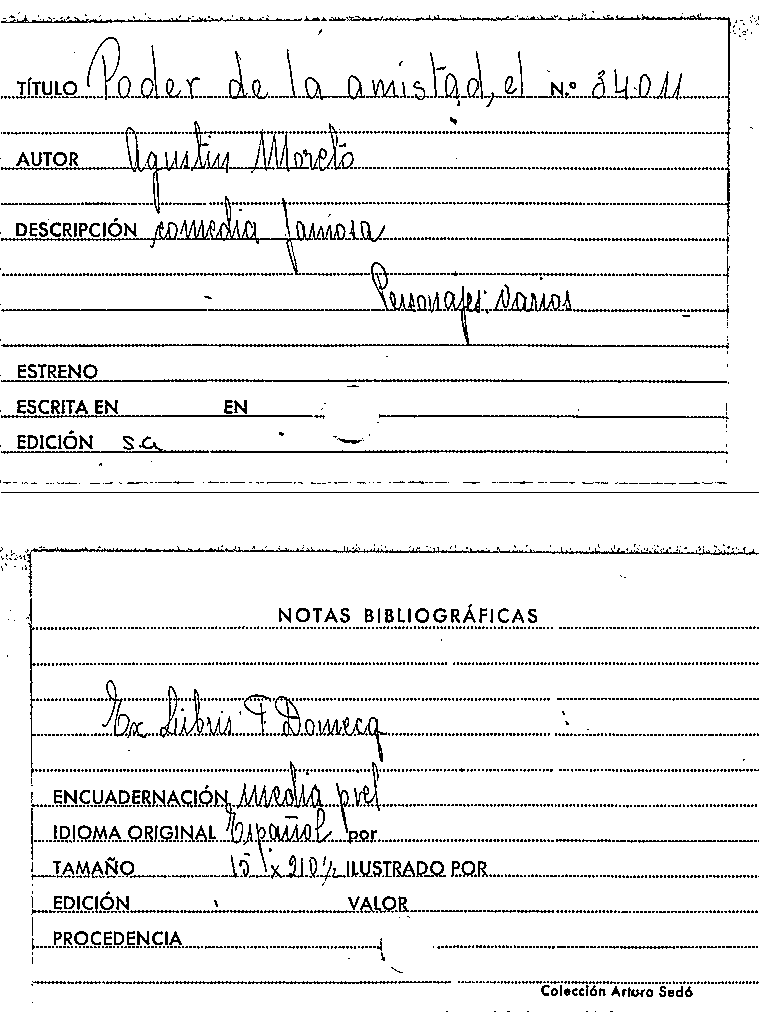 TÍTULO Poder de la amistad, el N.º 34.011
AUTOR Agustin Moreto
DESCRIPCIÓN comedia famosa
Personajes: varios
ESTRENO
ESCRITA EN EN
EDICIÓN s.a
NOTAS BIBLIOGRÁFICAS
Ex Libris F Domecq
ENCUADERNACIÓN media piel
IDIOMA ORIGINAL Español por
TAMAÑO 15 x 210½ ILUSTRADO POR
EDICIÓN VALOR
PROCEDENCIA
Colección Arturo Sedó